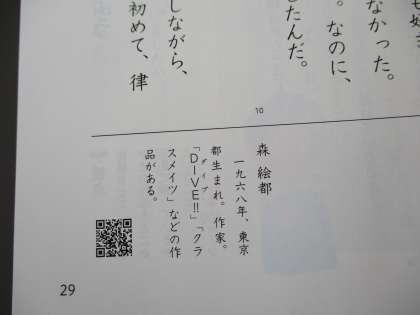 も好き
なかった。
。なのに、
したんだ。
しながら、
初めて、律
10
森 絵都
一九六八年、東京
都生まれ。作家。
「DIVE!!」「クラ
ダイブ
スメイツ」などの作
品がある。
29